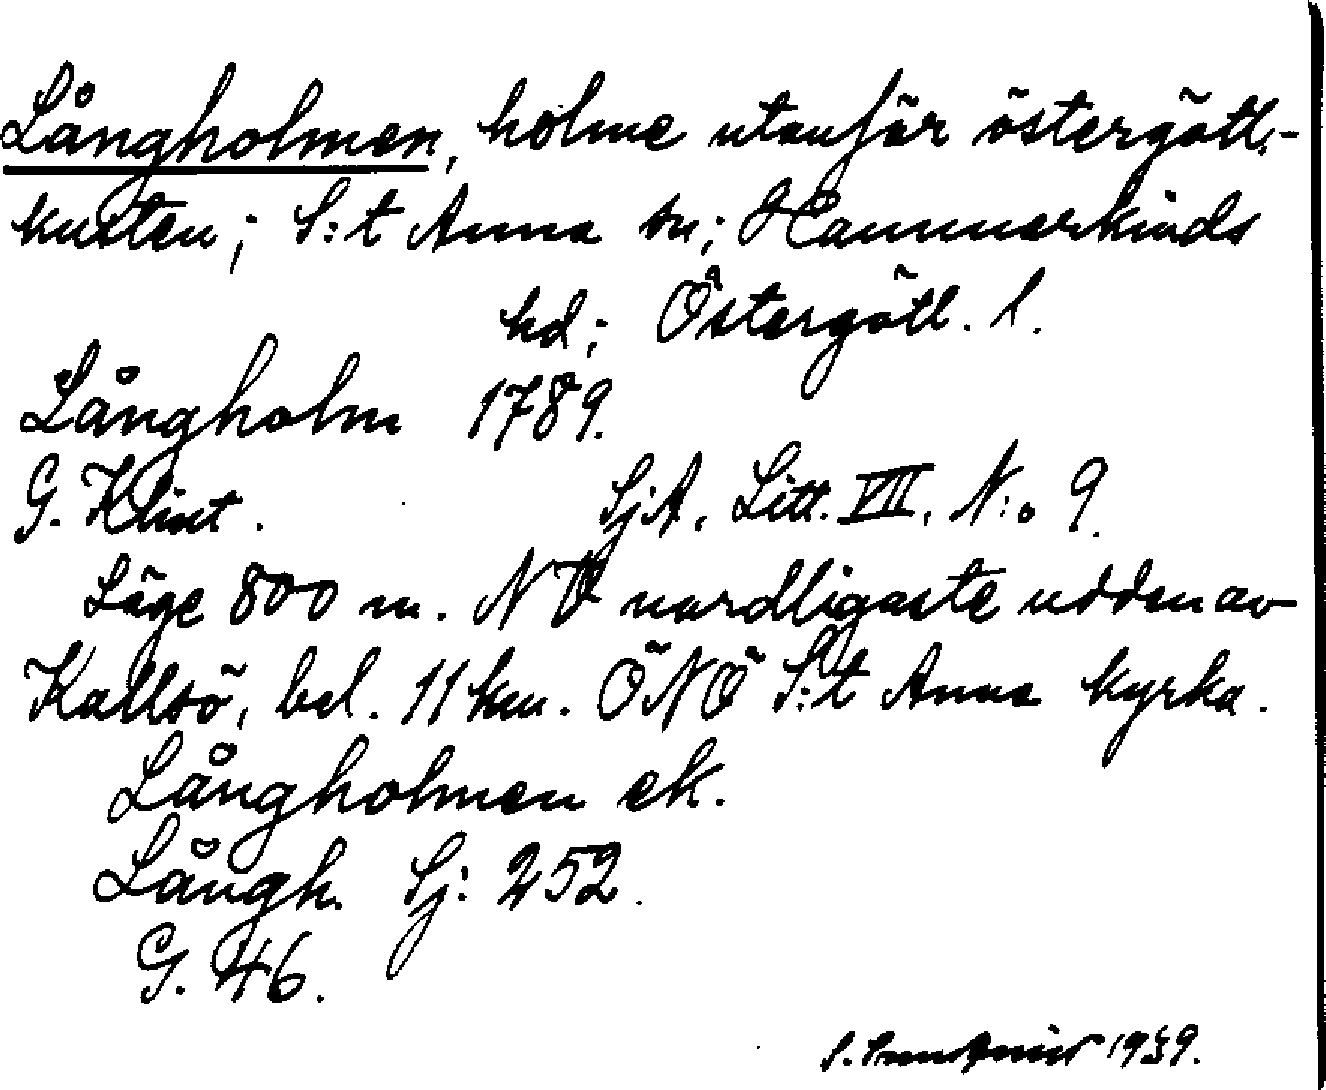 Långholmen, holme utanför östergötl.-
kusten; S:t Anna sn; Hammerkinds
hd; Östergötl. l.
Långholm 1789.
G. Klint. SjA, Litt. VII, N:o 9.
Läge 800 m. NV nordligaste udden av
Kallsö, bel. 11 km. ÖNÖ S:t Anna kyrka.
Långholmen ek.
Långh. Sj: 252.
G. 46.
1939.